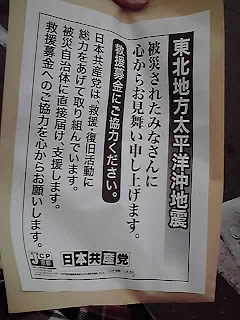 東北地方太平洋沖地震
被災されたみなさんに
心からお見舞い申し上げます。
救援募金にご協力ください。
日本共産党は、救援・復旧活動に
総力をあげて取り組んでいます。
被災自治体に直接届け、支援します。
救援募金へのご協力を心からお願いします。
JCP
日本共産党